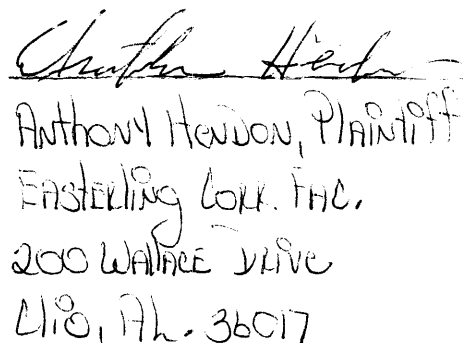 Anthony Hendon
Anthony Hendon, Plaintiff
Easterling Corr. Fac.
200 Wallace Drive
Clio, AL. 36017